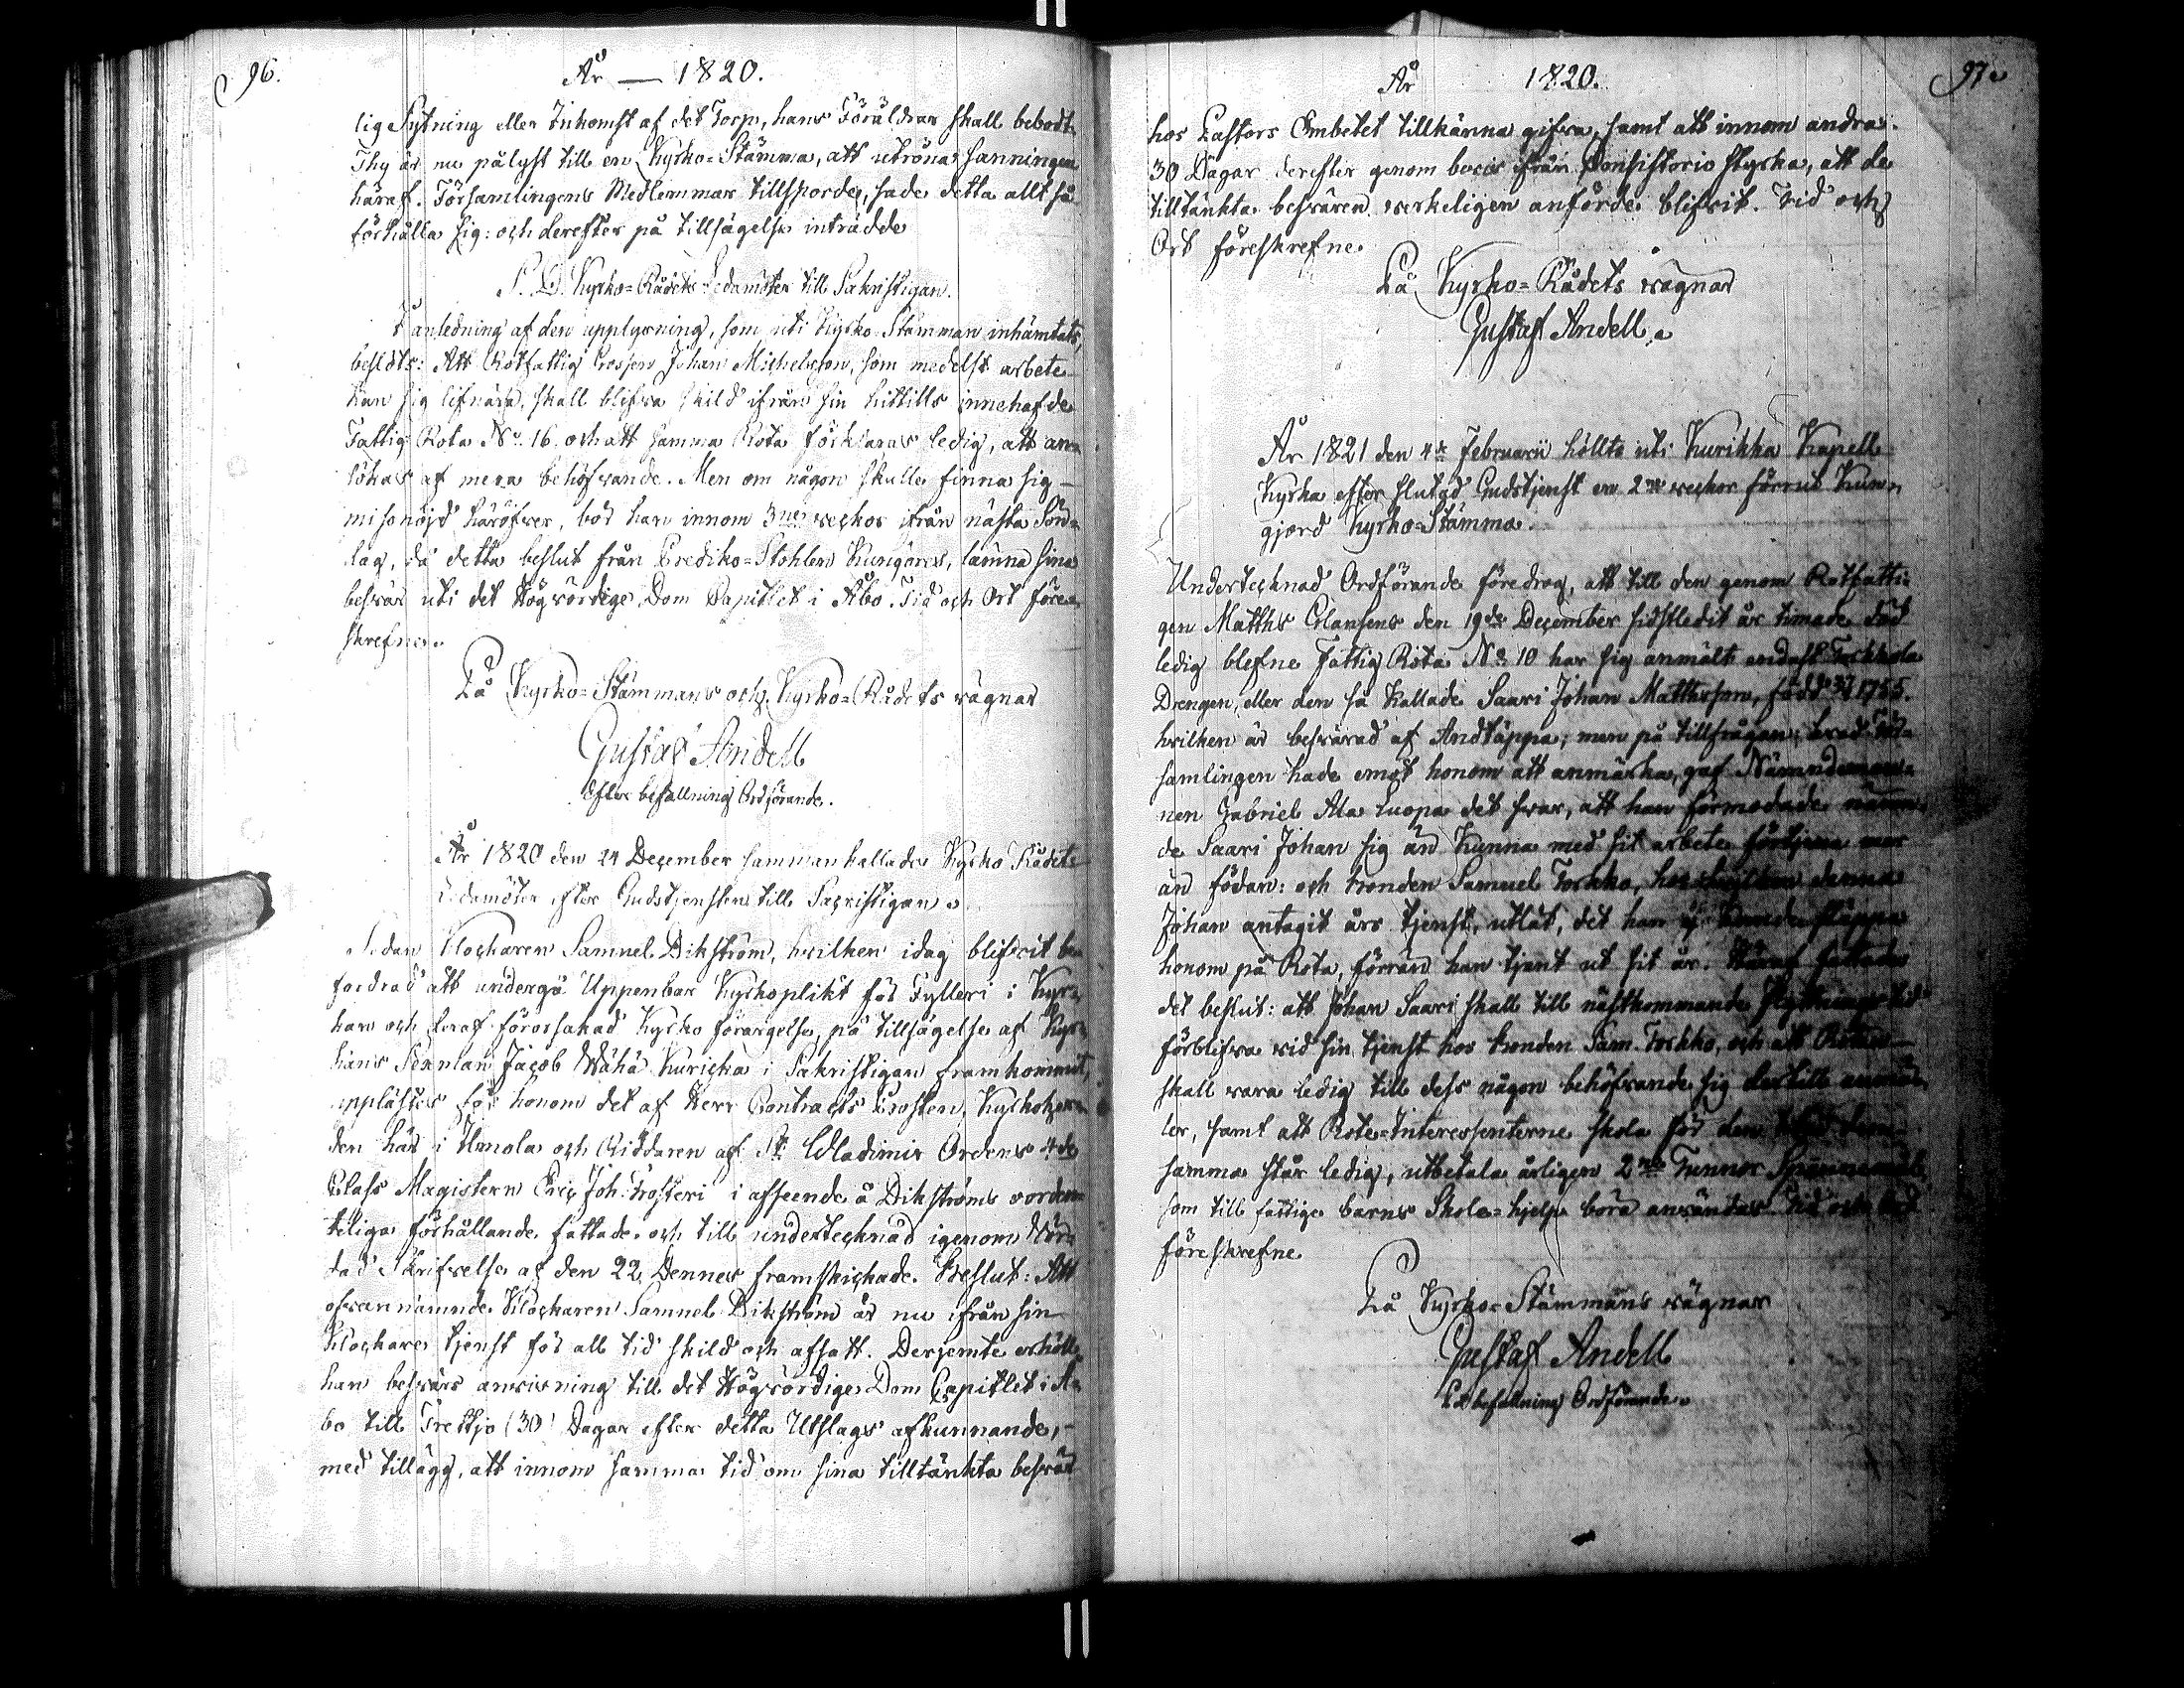 96.
År — 1820.
lig Sytning eller Inkomst af det Torp, hans Föräldrar skall bebodt,
Thy är nu pålyst till en Kyrko-Stämma, att utröna sanningen
häraf. Församlingens Medlemmar tillsporde, sade detta allt så
förhålla sig: och derefter på tillsägelse inträdde
S. D. Kyrko-Rådets Ledamöter till Sakristigan.
I anledning af den upplysning, som uti Kyrko Stämman inhämtats,
beslöts: Att Rotfattig Drossen Johan Michelsson, som medelst arbete
kan sig lifnära, skall blifva skild ifrån sin hittills innehafde
Fattig Rota No 16. och att samma Rota förklaras ledig, att an-
sökas af mera behöfvande. Men om någon skulle finna sig
missnöjd häröfver, bör han innom 3ne veckor ifrån nästa Sön-
dag, då detta beslut från Prediko-Stohlen Kungöres, lämna sina
besvär uti det Högvördige Dom Capitlet i Åbo. Tid och Ort före-
skrefne.
På Kyrko-Stämmans och Kyrko-Rådets vägnar
Gustaf Andell
Efter befallning Ordförande.
År 1820 den 24 December sammankallades Kyrko Rådets
Ledamöter efter Gudstjensten till Sacristigan.
Sedan Klockaren Samuel Dikström, hvilken idag blifvit be-
fordrad att undergå Uppenbar Kyrkoplikt för Fylleri i Kyr-
kan och deraf förorsakad Kyrko förargelse, på tillsägelse af Kyr-
kans Sexman Jacob Wähä Kuricka i Sakristigan framkommit,
upplästes för honom det af Herr Contracts Prosten, Kyrkoher-
den här i Ilmola och Riddaren af St Wladimir Ordens 4de
Class Magistern Eric Joh. Frosteri i afseende å Dikströms oorden-
teliga förhållande fattade och till undertecknad igenom Vör-
dad Skrifvelse af den 22 Dennes framskickade Beslut: Att
ofvannämnde Klockaren Samuel Dikström är nu ifrån sin
Klockare tjenst för all tid skild och afsatt. Derjemte erhöll
han besvärs anvisning till det Högvördige Dom Capitlet i Å-
bo till Trettjo (30) Dagar efter detta Utslags afkunnande,
med tillägg, att innom samma tid om sina tilltänkta besvär
97.
År 1820.
hos Pastors Embetet tillkänna gifva, samt att innom andra
30 Dagar derefter genom bevis ifrån Consistorio styrka, att de
tilltänkta besvären verkeligen anförde blifvit. Tid och
Ort föreskrefne.
På Kyrko-Rådets vägnar
Gustaf Andell.
År 1821 den 4de Februarii höllts uti Kurikka Kapell
Kyrka efter slutad Gudstjenst en 2ne veckor förrut Kun-
gjord Kyrko-Stämma.
Undertecknad Ordförande föredrog, att till den genom Rotfatti-
gen Matths Clansens den 19de December sidstledit år timade död
ledig blefne Fattig Rota No 10 har sig anmält endast Torkkola
Drengen, eller den så kallade Saari Johan Mattsson, född 1755.
hvilken är besvärad af Andtäppa; men på tillfrågan, hvad För-
samlingen hade emot honom att anmärka, gaf Nämndeman-
nen Gabriel Ala Luopa det svar, att han förmodade nämn-
de Saari Johan sig än Kunna med sit arbete förtjena mer
än födan: och bonden Samuel Torkko, hos hvilken denna
Johan antagit års tjenst, utlät, det han ej Kunde släppa
honom på Rota, förrän han tjent ut sit år. Häraf fattades
det beslut: att Johan Saari skall till nästkommande flyttningstid
förblifva vid sin tjenst hos bonden Sam. Torkko, och att Rotan
skall vara ledig till dess någon behöfvande sig dertill anmä-
ler, samt att Rote-Interessenterne skola för den tid
samma står ledig, utbetala årligen 2ne Tunnor Spannemål,
som till fattige barns Skole-hjelp böra användas. Tid och Ort
föreskrefne.
På Kyrko-Stämmans vägnar
Gustaf Andell
På befallning Ordförande.